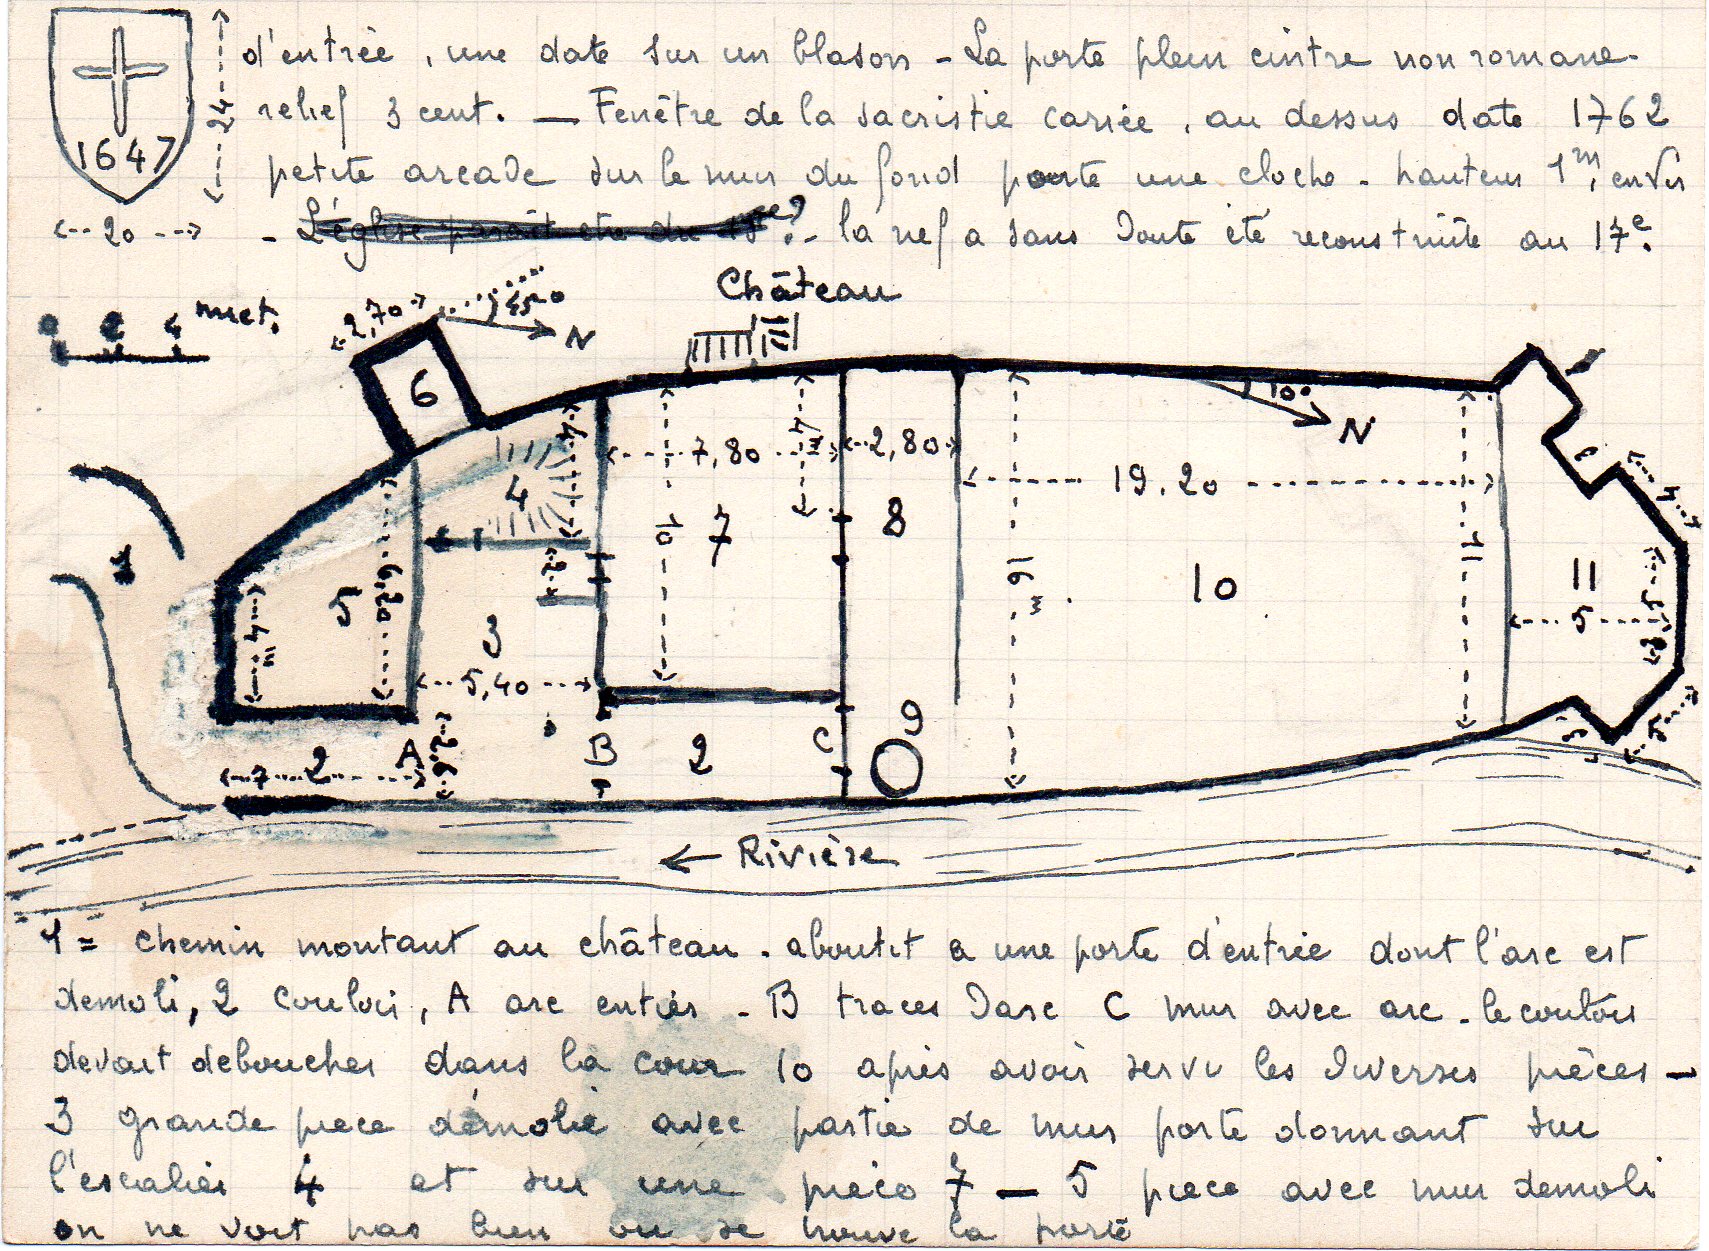 d'entrée, une date sur un blason - La porte plein cintre non romane -
relief 3 cent. — Fenêtre de la sacristie carrée, au dessus date 1762
petite arcade sur le mur du fond porte une cloche - hauteur 1m, envir
- L'église paraît être du 18e? - la nef a sans doute été reconstruite au 17e.
1647
24
20
Château
0 2 4 met.
2,70
45°
N
6
10°
N
4
7,80
4m
2,80
19,20
4
1
4
10
7
8
11
16m
10
11
5
6,20
2
5
5
8
4m
3
5,40
9
5
3
A
2,6
B
2
C
7
2
← Rivière
1 = chemin montant au château - aboutit a une porte d'entrée dont l'arc est
demoli, 2 couloir, A arc entier - B traces d'arc C mur avec arc - le couloir
devait deboucher dans la cour 10 après avoir servi les diverses pièces -
3 grande piece démolie avec partie de mur porte donnant sur
l'escalier 4 et sur une pièce 7 — 5 piece avec mur demoli
on ne voit pas bien ou se trouve la porte